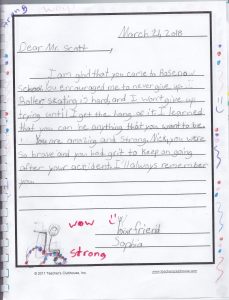 Strong wow
March 26, 2018
Dear Mr. Scott,
I am glad that you came to
School. You encouraged me to never give up.
Roller skating is hard, and I won't give up
trying until I get the hang of it. I learned
that you can be anything that you want to be.
You are amazing and strong. Nick, you were
so brave and you had grit to keep on going
after your accident. I'll always remember
you.
wow
Your friend
Sophia
Strong
© 2011 Teacher's Clubhouse, Inc.
www.teachersclubhouse.com